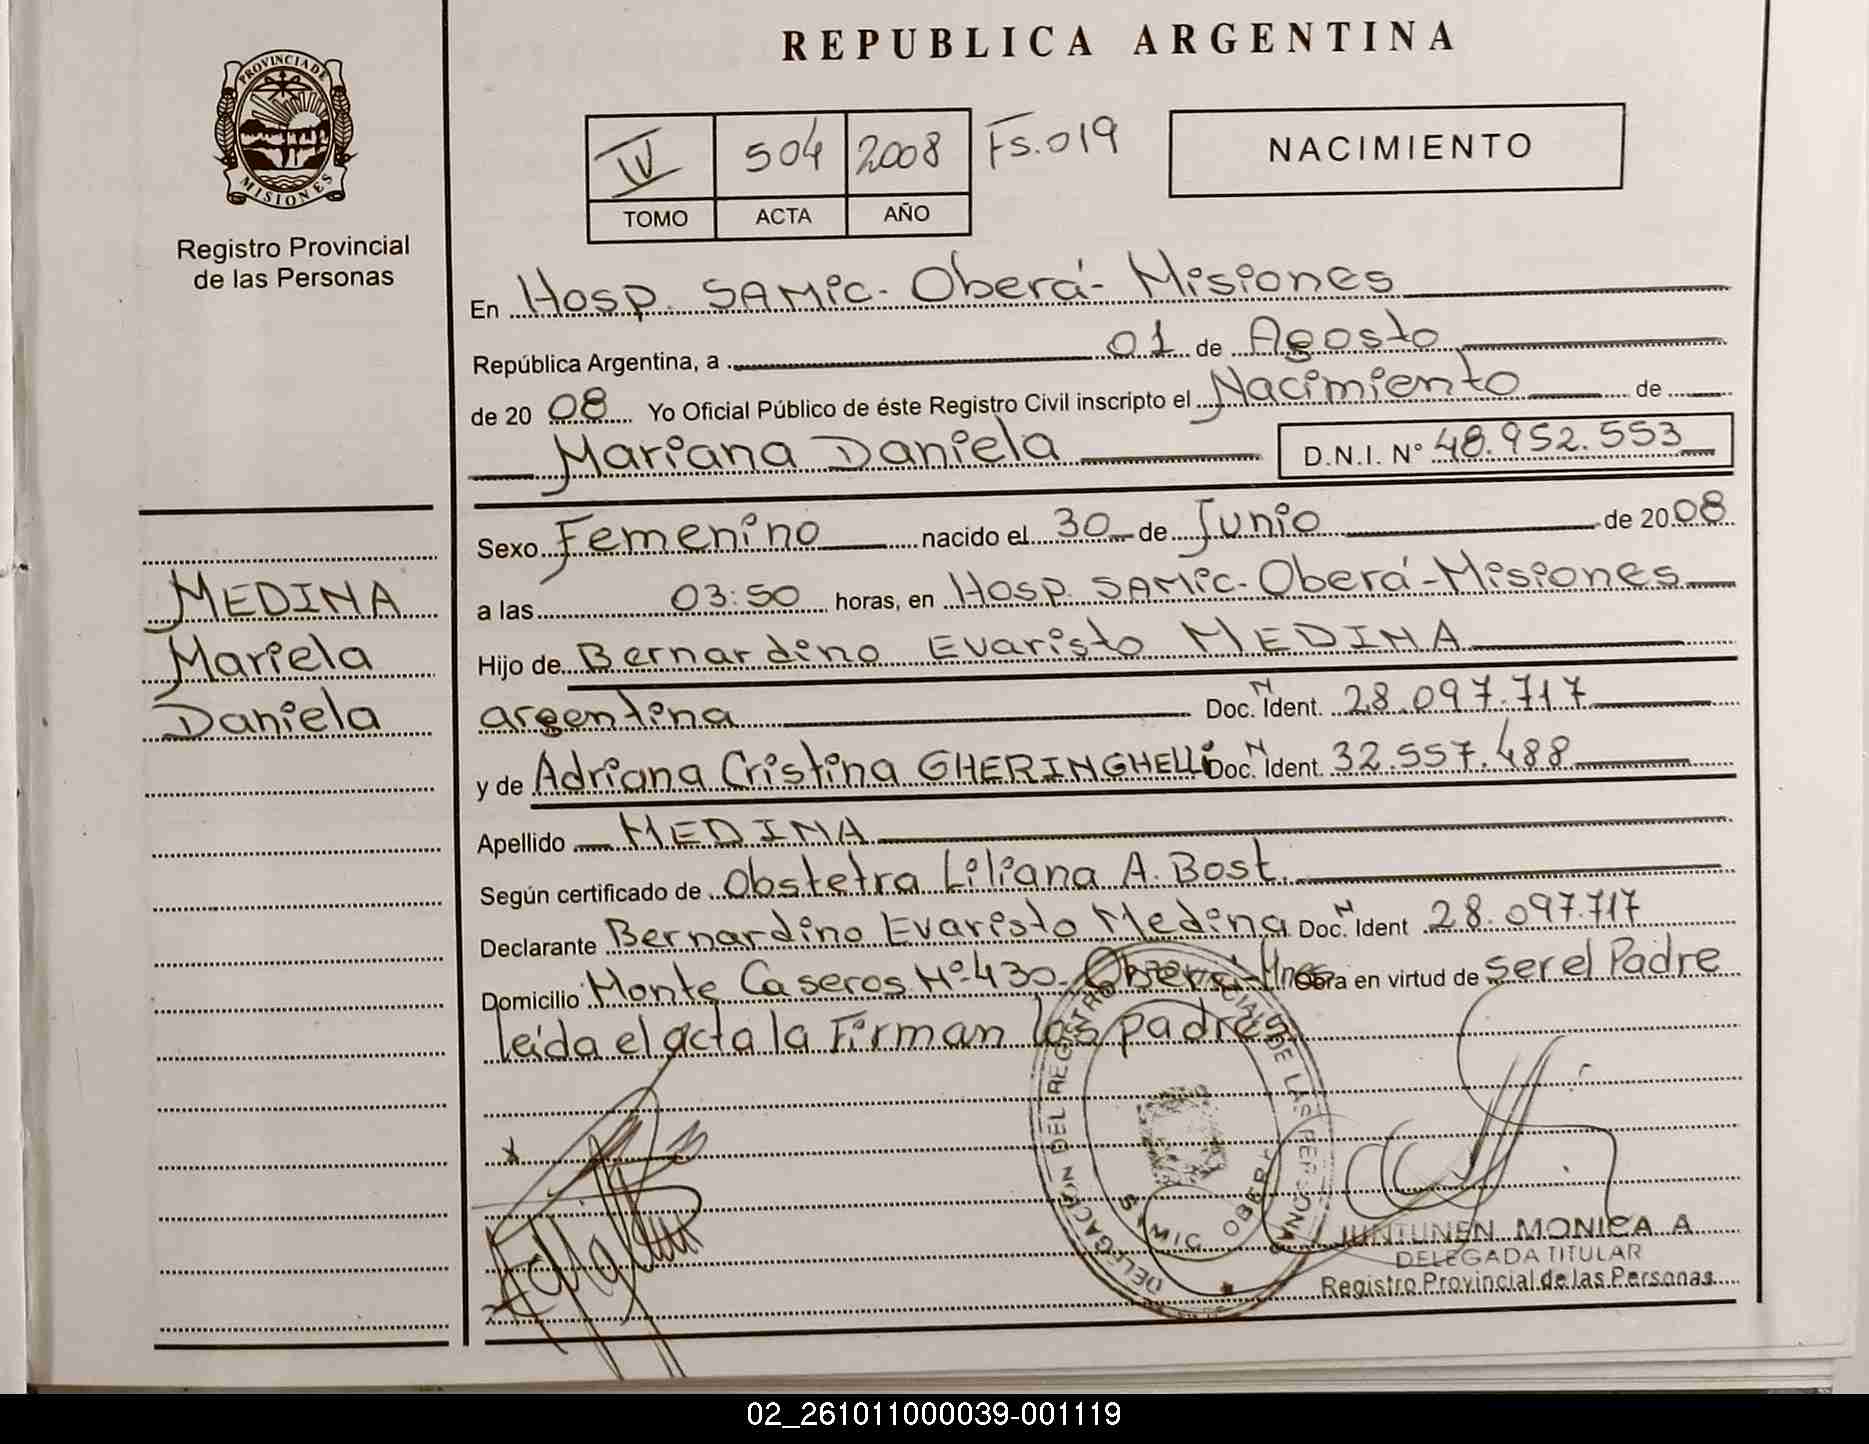 REPUBLICA ARGENTINA
PROVINCIA DE
MISIONES
Registro Provincial
de las Personas
IV 504 2008 Fs. 019
TOMO ACTA AÑO
NACIMIENTO
MEDINA
Mariela
Daniela
En Hosp. SAMic - Oberá - Misiones
República Argentina, a 01 de Agosto
de 20 08 Yo Oficial Público de éste Registro Civil inscripto el Nacimiento de
Mariana Daniela D.N.I. N° 48.952.553
Sexo Femenino nacido el 30 de Junio de 20 08
a las 03:50 horas, en Hosp. SAMic - Oberá - Misiones
Hijo de Bernardino Evaristo MEDINA
argentina Doc. N Ident. 28.097.717
y de Adriana Cristina GHERINGHELLi Doc. N Ident. 32.557.488
Apellido MEDINA
Según certificado de Obstetra Liliana A. Bost.
Declarante Bernardino Evaristo Medina Doc. N Ident 28.097.717
Domicilio Monte Caseros N° 430 - Oberá - Mnes Obra en virtud de ser el Padre
leida el acta la Firman los padres
DELEGACION DEL REGISTRO PROVINCIAL DE LAS PERSONAS
SAMIC OBERA
JUNTUNEN MONICA A
DELEGADA TITULAR
Registro Provincial de las Personas
02_261011000039-001119